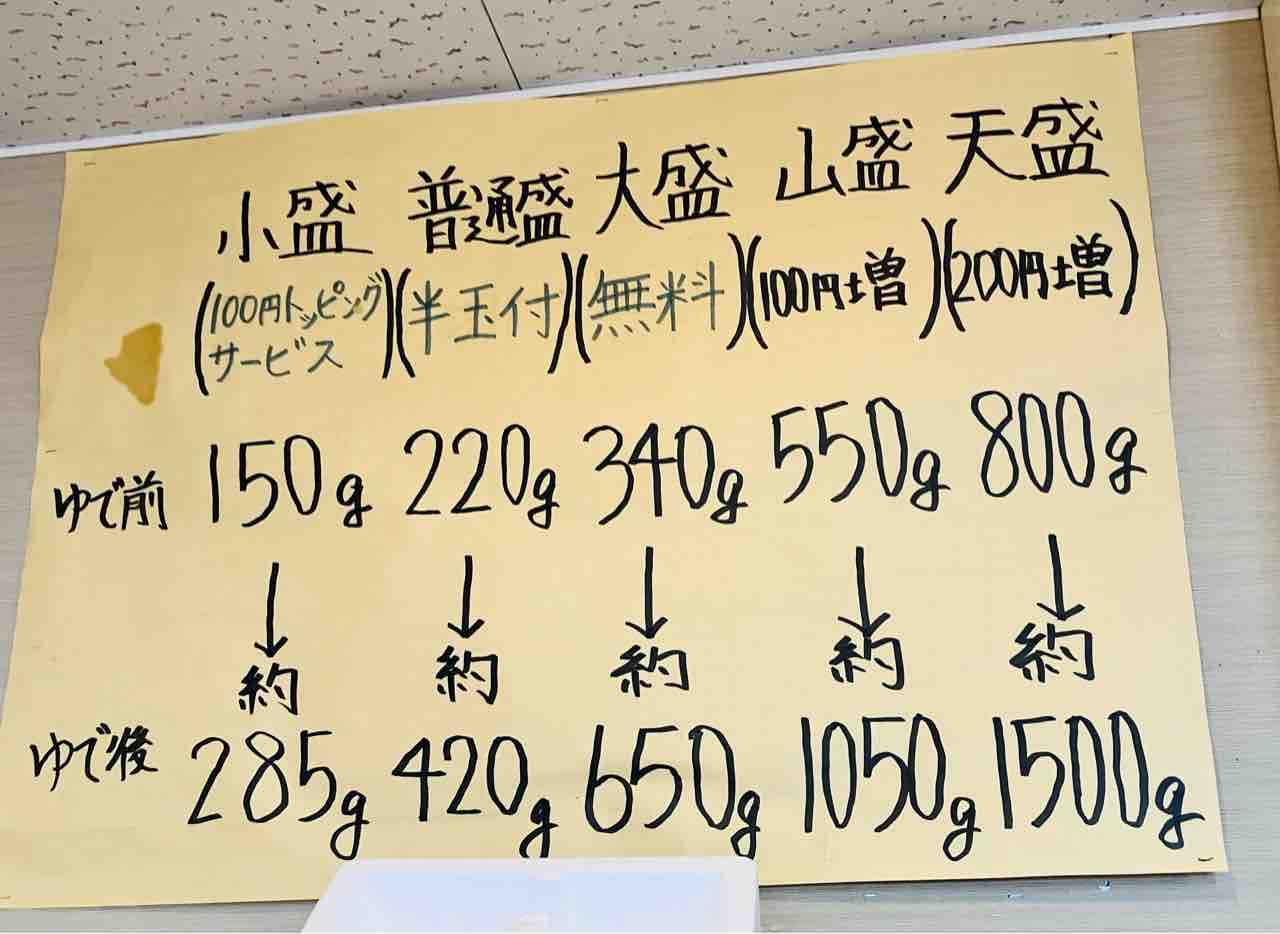 小盛 普通盛 大盛 山盛 天盛
(100円トッピングサービス) (半玉付) (無料) (100円増) (200円増)
ゆで前 150g 220g 340g 550g 800g
↓ ↓ ↓ ↓ ↓
約 約 約 約 約
ゆで後 285g 420g 650g 1050g 1500g